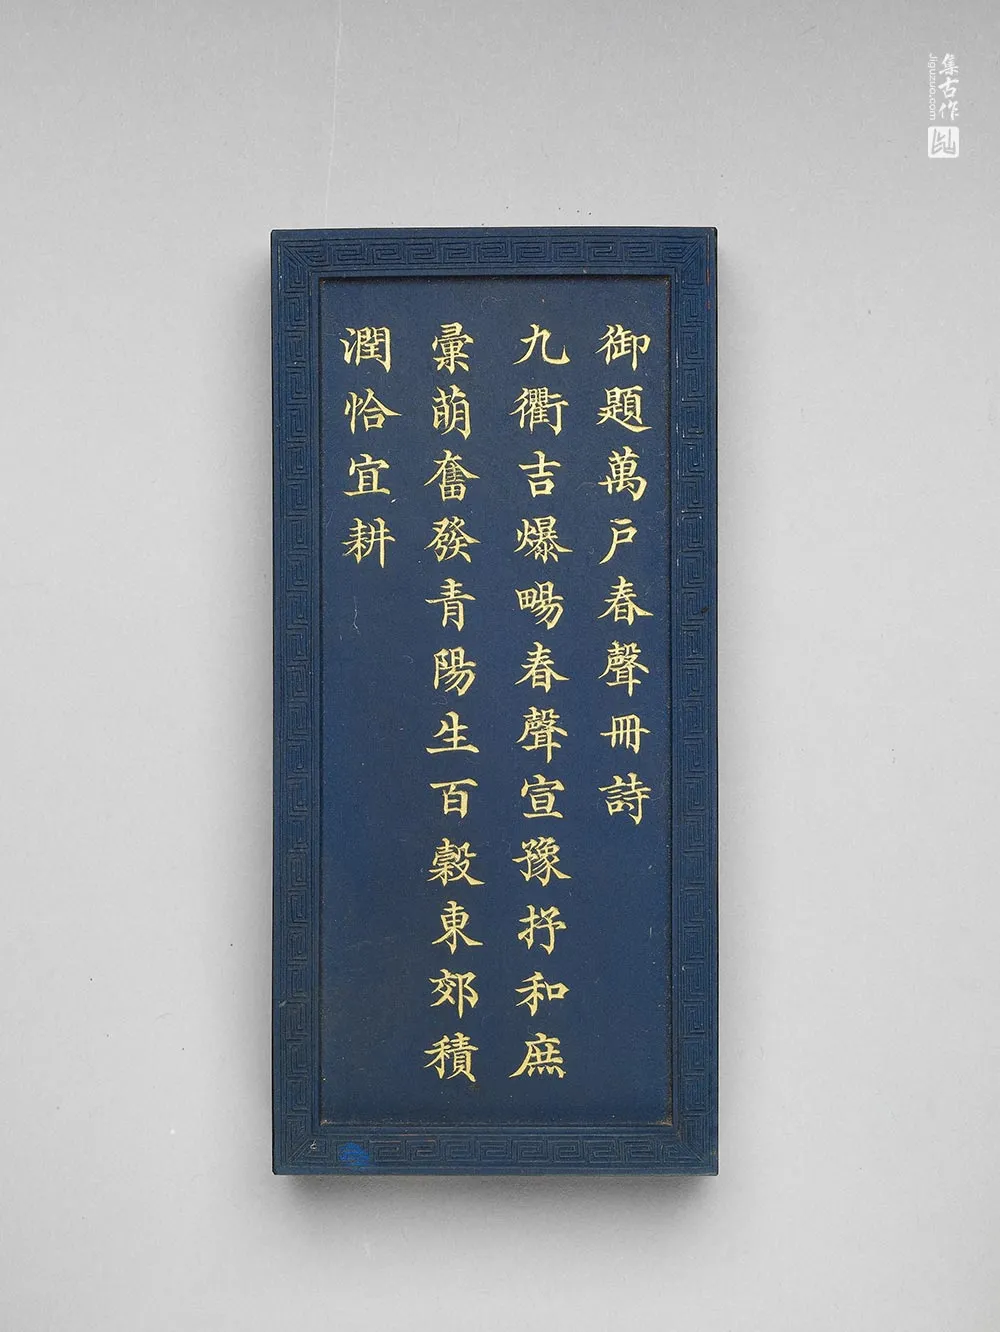 御題萬戸春聲冊詩
九衢吉爆暢春聲宣豫抒和庶
彙萌奮發青陽生百穀東郊積
潤恰宜耕
集古作
Jiguzuo.com